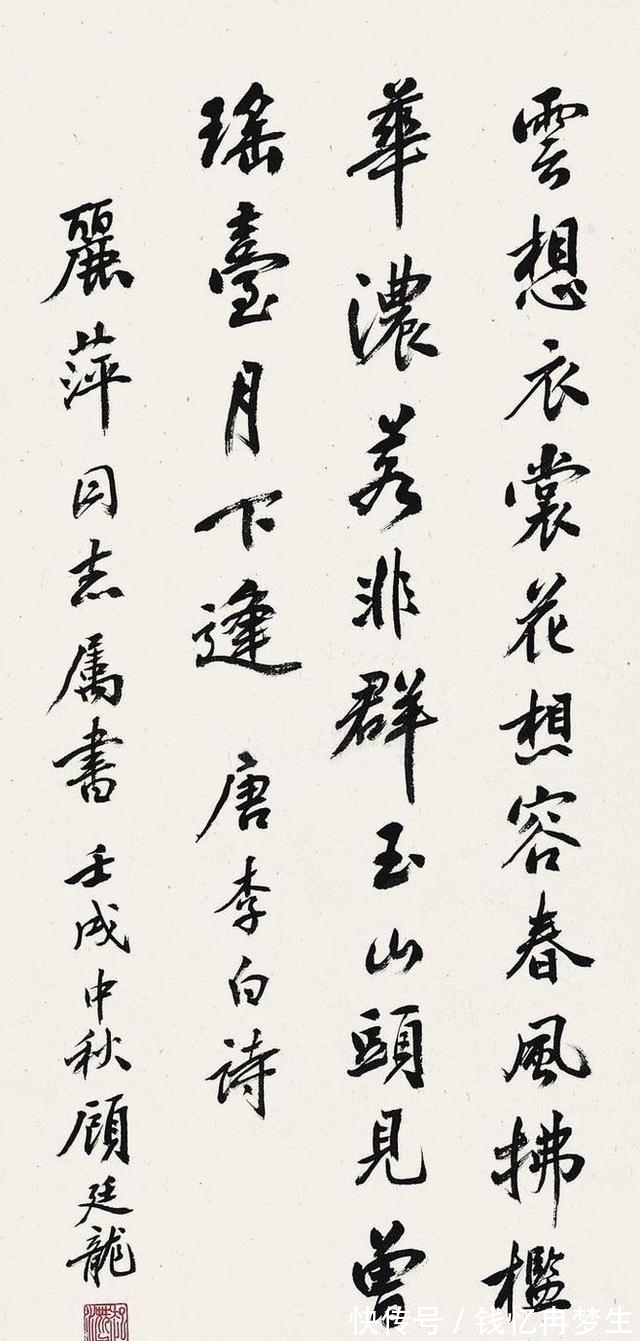 雲想衣裳花想容春風拂檻
華濃若非群玉山頭見會
瑤臺月下逢 唐李白詩
麗萍同志属書 壬戌中秋顧廷龍
快传号 / 钱忆冉梦生